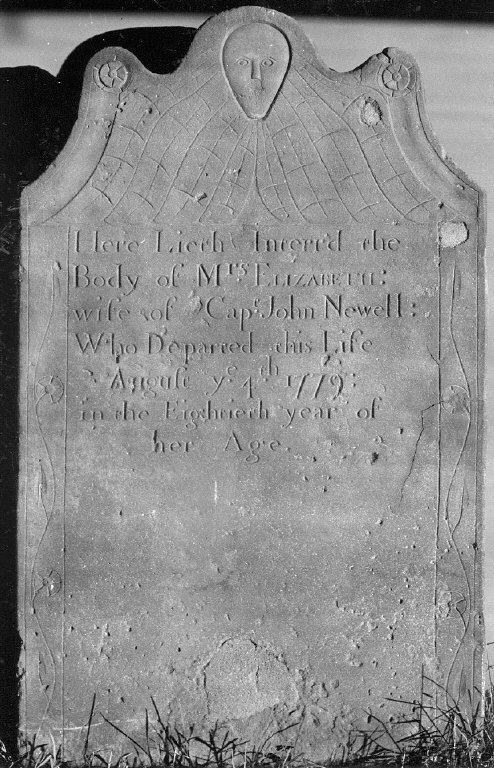 Here Lieth Interr'd the
Body of Mrs ELIZABETH:
wife of Capt John Newell:
Who Departed this Life
August ye 4th 1779:
in the Eightieth year of
her Age.